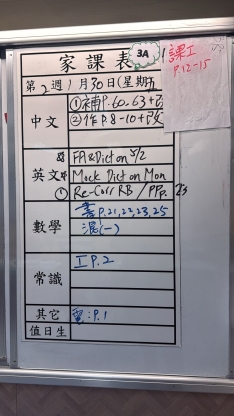 家課表
3A
課工
P.12-15
第2週1月30日(星期五
中文
①補P.60-63+改
②作P.8-10+改
英文
FA&Dict on 5/2
Mock Dict on Mon
Re-Corr RB / PP
數學
書P.21,22,23,25
混(一)
常識
工P.2
其它
電:P.1
值日生